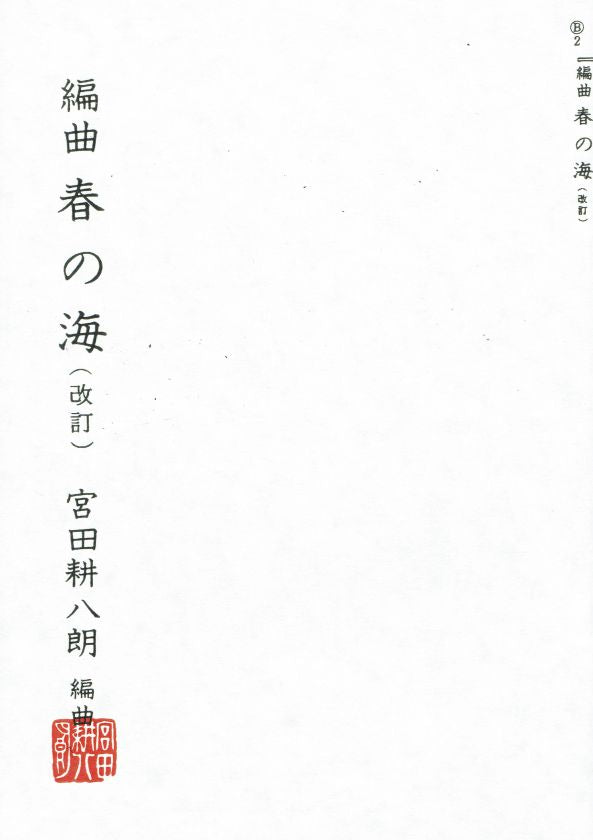 Ⓑ2『編曲 春の海（改訂）
編曲 春の海（改訂） 宮田耕八朗 編曲
宮田
耕八
朗